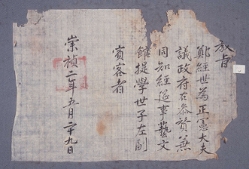 教旨
鄭經世爲正憲大夫
議政府右參贊兼
同知經筵事藝文
館提學世子左副
賓客者
崇禎二年五月二十九日